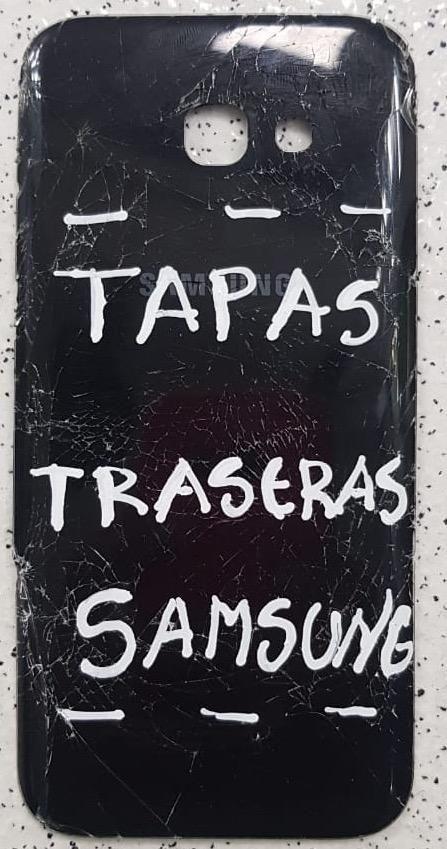 SAMSUNG
TAPAS
TRASERAS
SAMSUNG